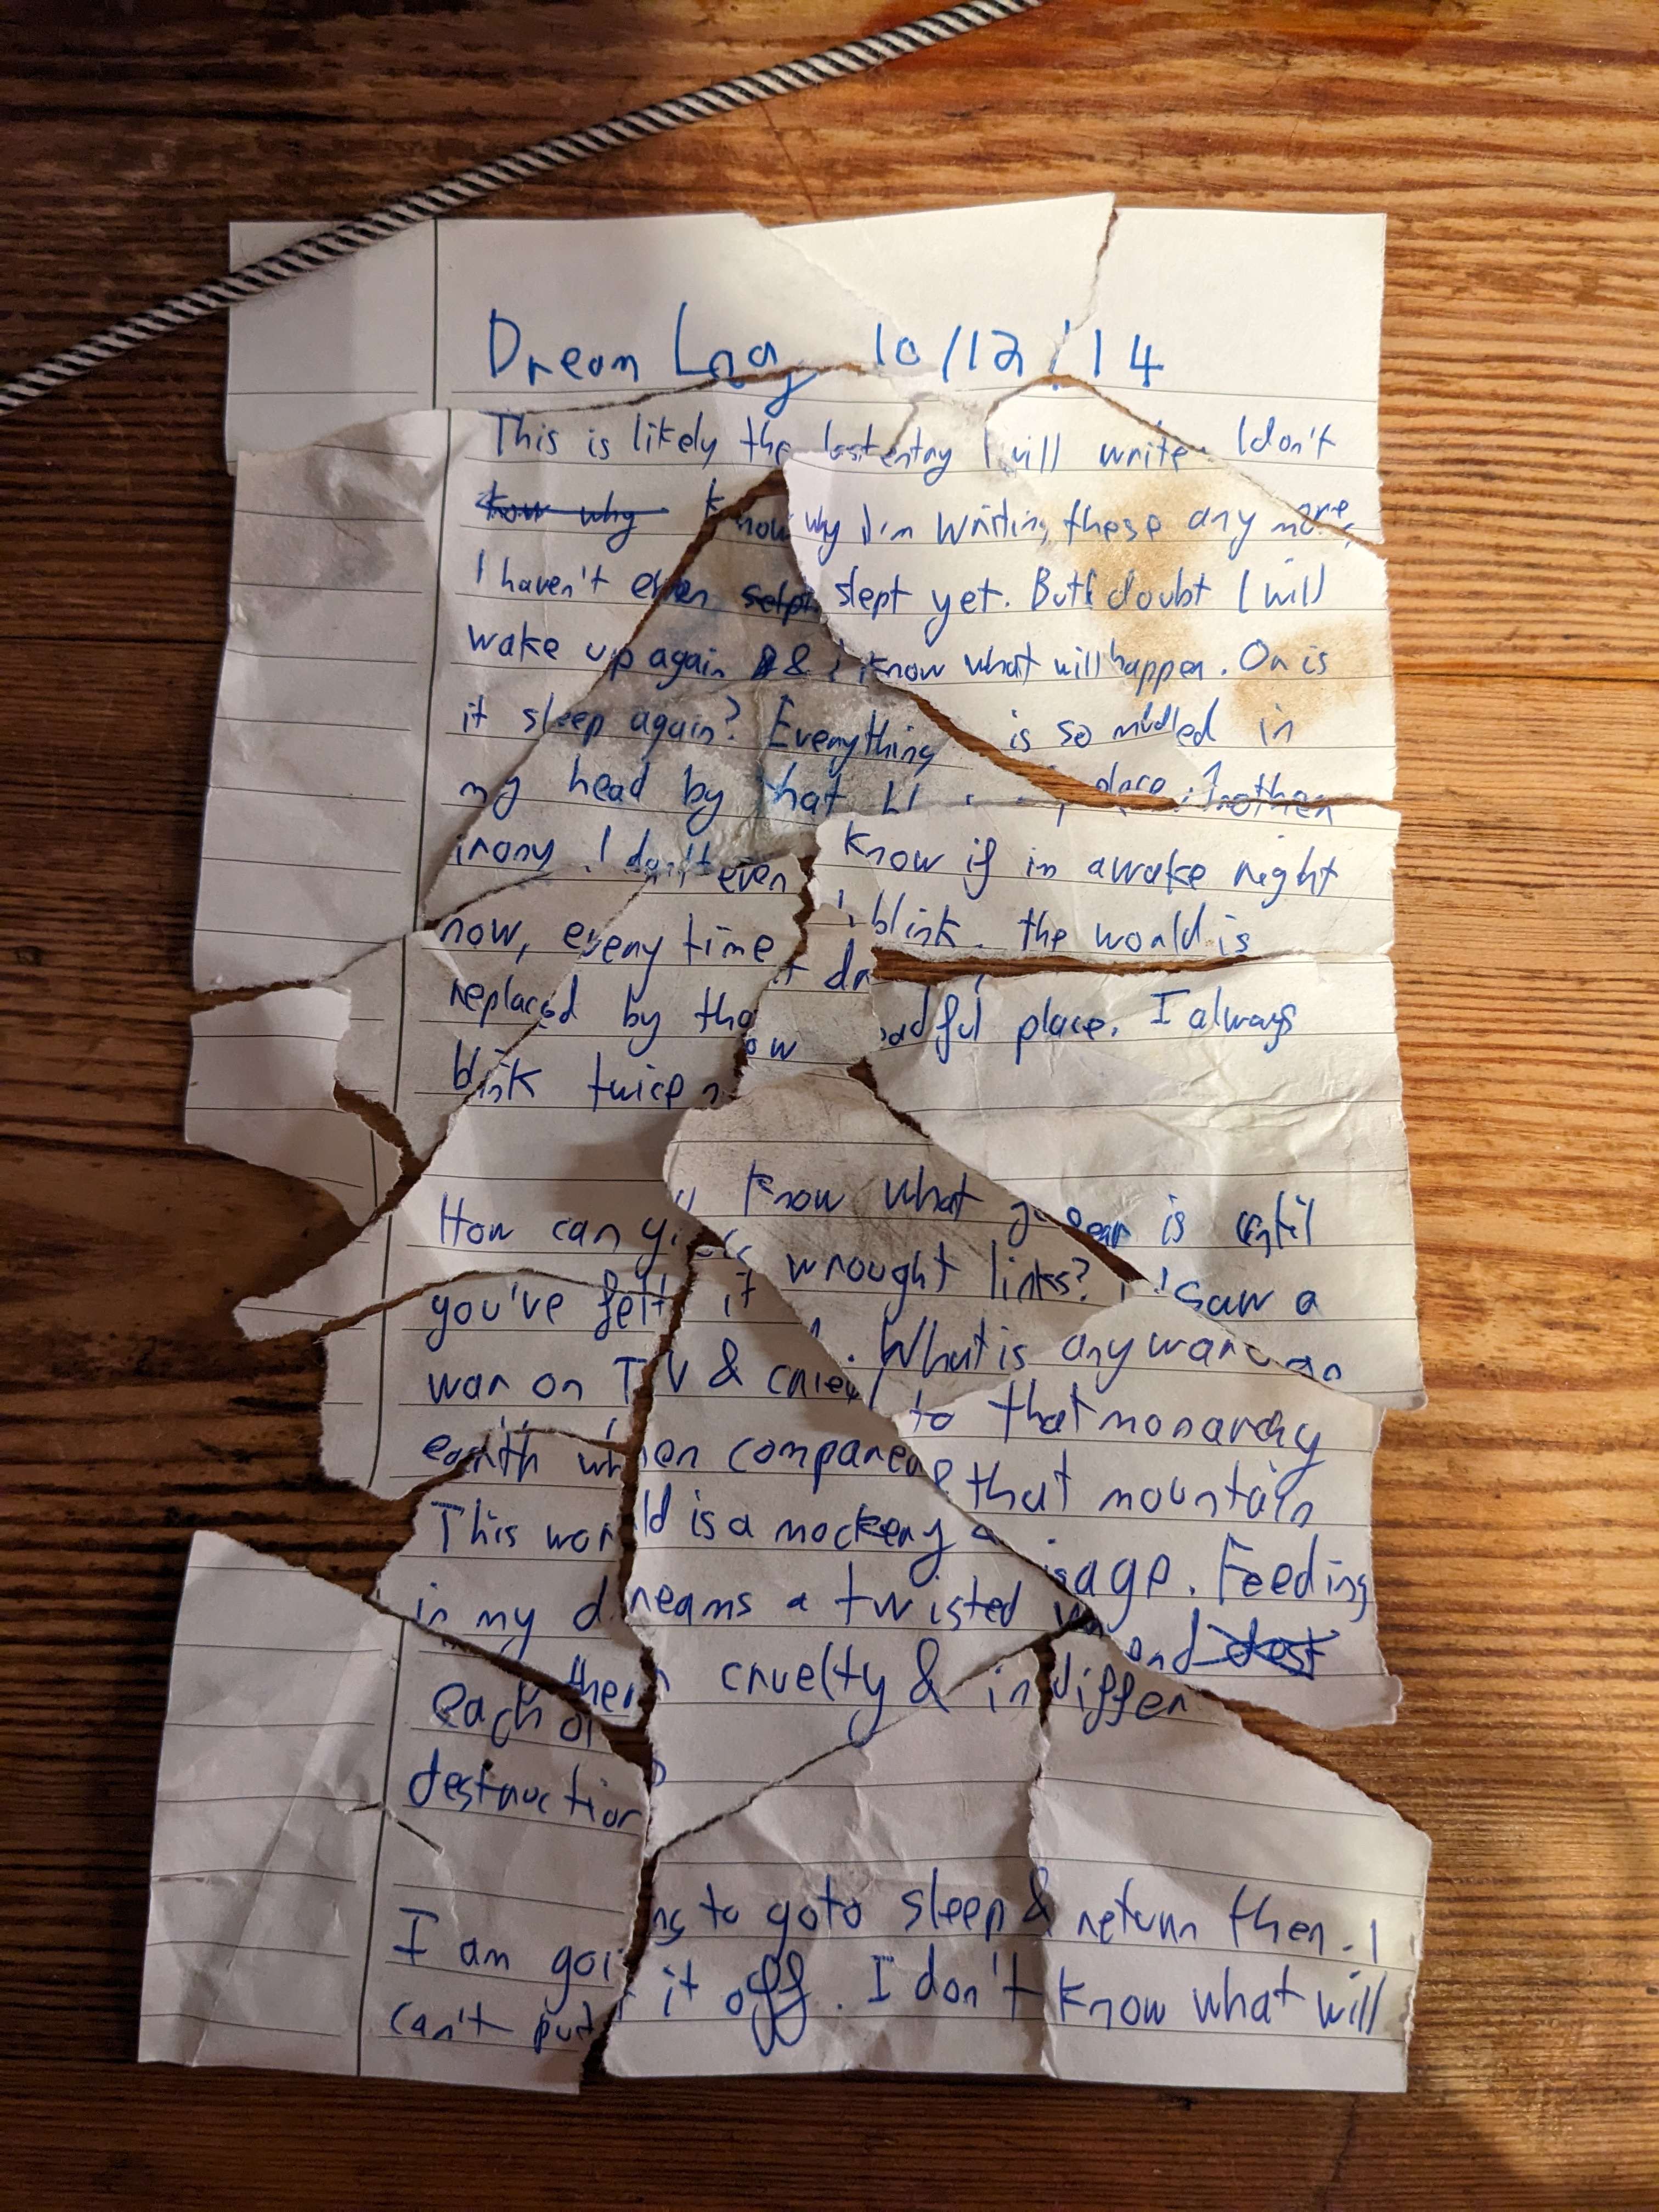 Dream Log 10/12/14
This is likely the last entry I will write. I don't
know why know why I'm writing these any more,
I haven't even selpt slept yet. But I doubt I will
wake up again & I know what will happen. Or is
it sleep again? Everything is so muddled in
my head by that place. Another
irony. I don't even know if im awake right
now, every time I blink. the world is
replaced by that dreadful place. I always
blink twice now
How can you know what fear is until
you've felt it wrought links? I saw a
war on TV & cried. What is any war on
earth when compared to that monarchy
This world is a mockery that mountain
in my dreams a twisted visage. Feeding
each other cruelty & indiffer end dest
destruction
I am going to go to sleep & return then. I
can't put it off. I don't know what will